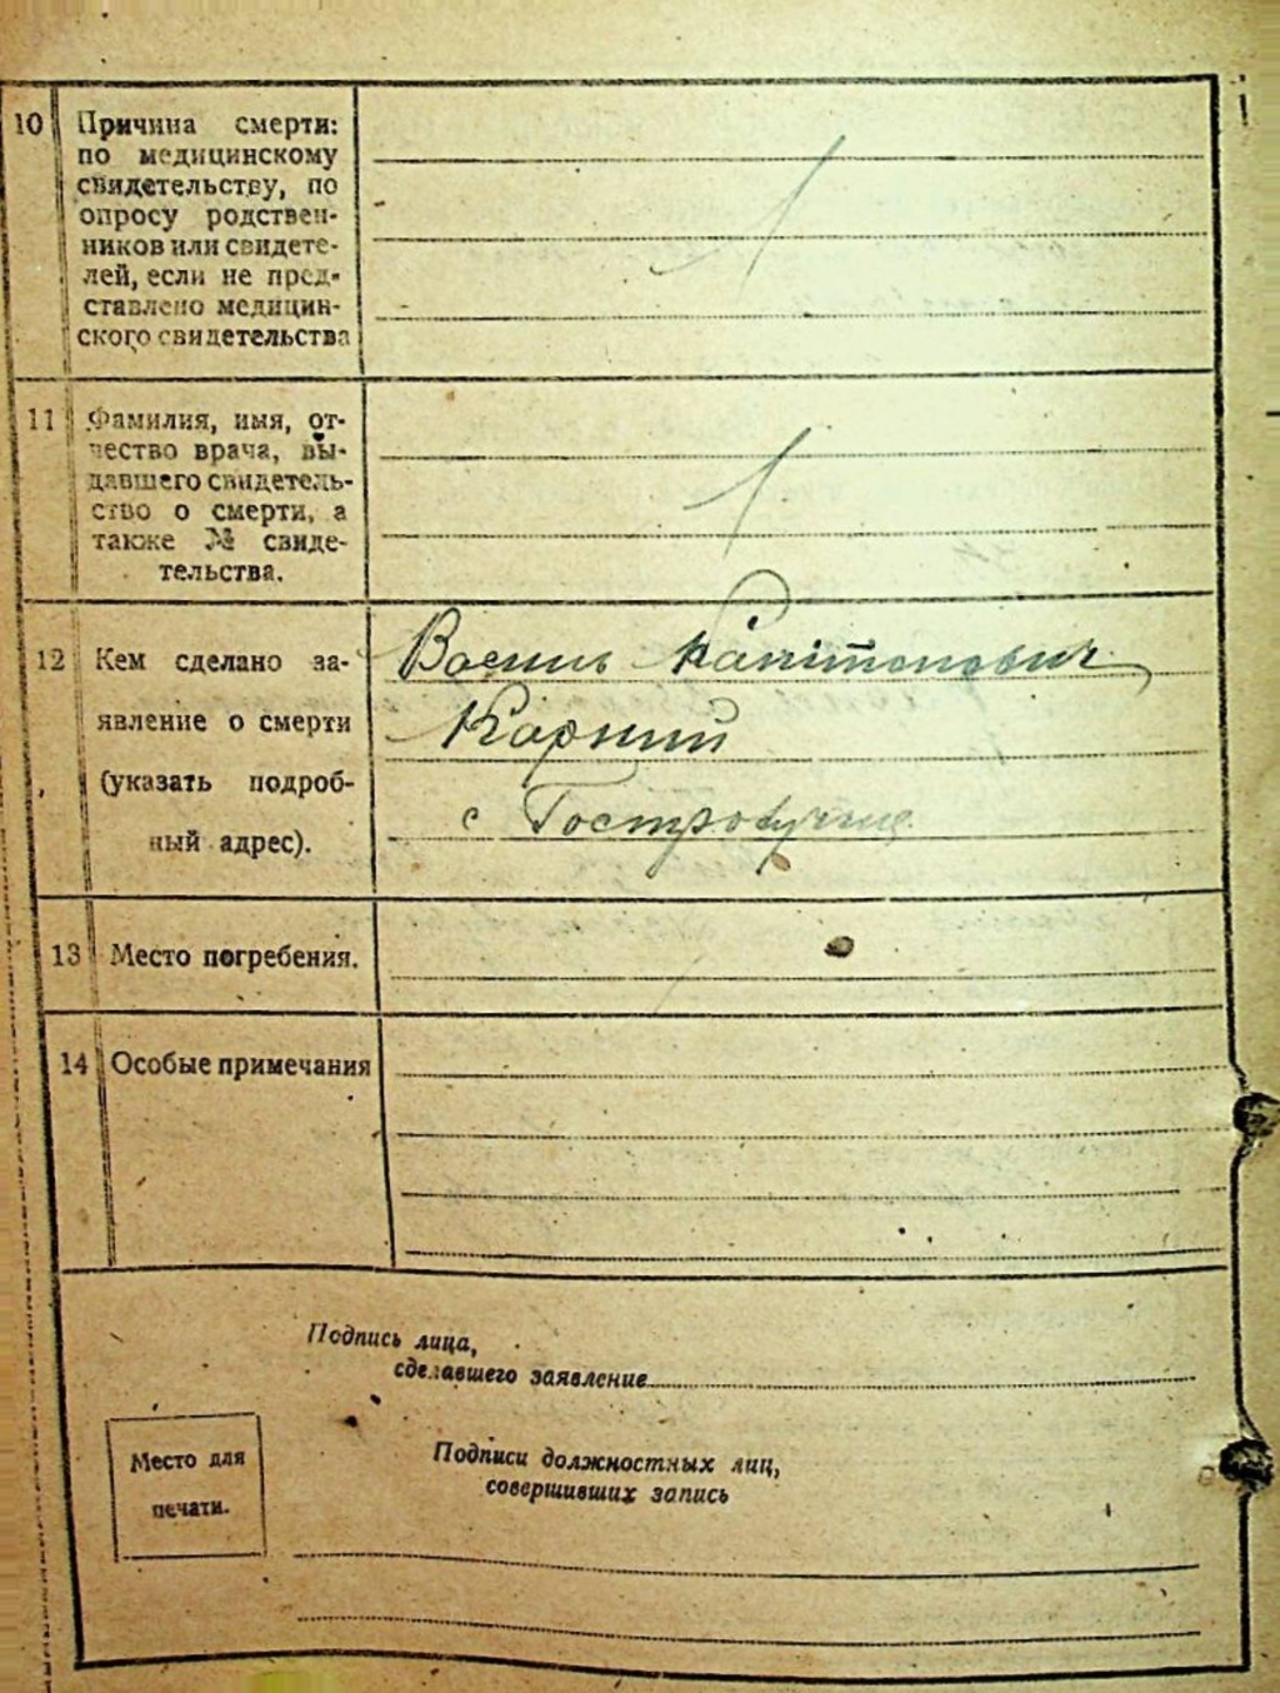 10 Причина смерти:
по медицинскому
свидетельству, по
опросу родствен-
ников или свидете-
лей, если не пред-
ставлено медицин-
ского свидетельства
11 Фамилия, имя, от-
чество врача, вы-
давшего свидетель-
ство о смерти, а
также № свиде-
тельства.
12 Кем сделано за-
явление о смерти
(указать подроб-
ный адрес).
Василь Капітонович
Корний
с
13 Место погребения.
14 Особые примечания
Подпись лица,
сделавшего заявление
Место для
печати.
Подписи должностных лиц,
совершивших запись